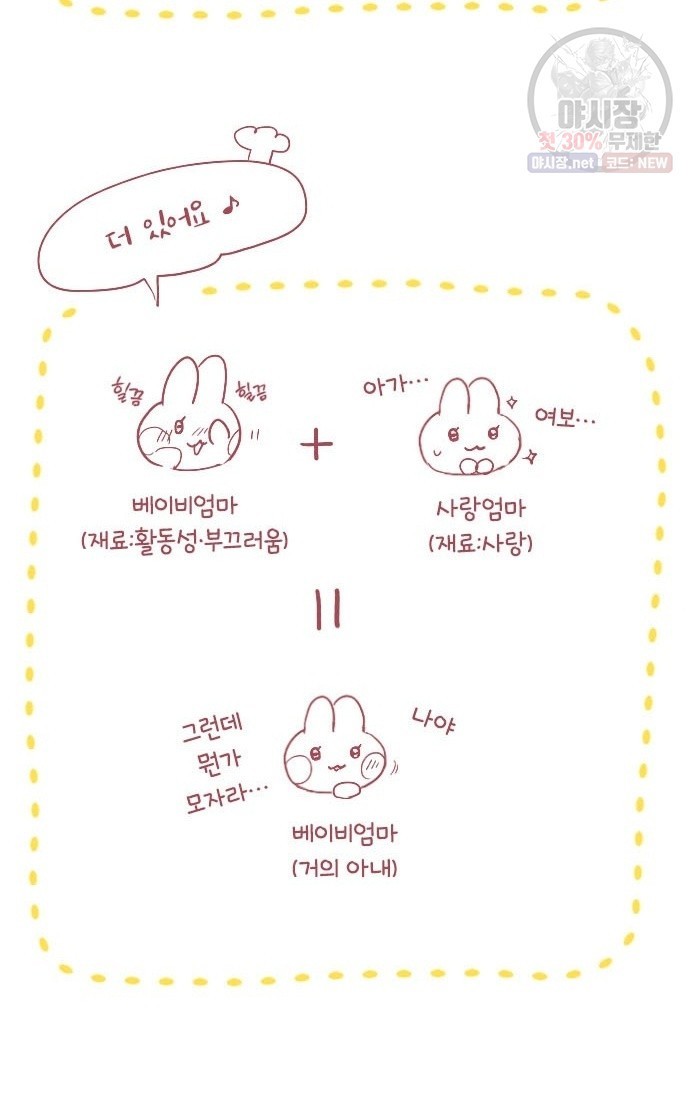 야시장
첫 30% 무제한
야시장.net 코드: NEW
더 있어요 ♪
힐끔
힐끔
아가…
여보…
+
베이비엄마
(재료:활동성·부끄러움)
사랑엄마
(재료:사랑)
=
그런데
뭔가
모자라…
나야
베이비엄마
(거의 아내)